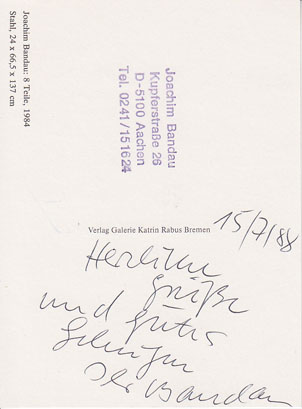 Joachim Bandau: 8 Teile, 1984
Stahl, 24 x 66,5 x 137 cm
Joachim Bandau
Kupferstraße 26
D-5100 Aachen
Tel. 0241/151624
Verlag Galerie Katrin Rabus Bremen
15/7/88
Herzliche
Grüße
und gutes
Gelingen
Bandau